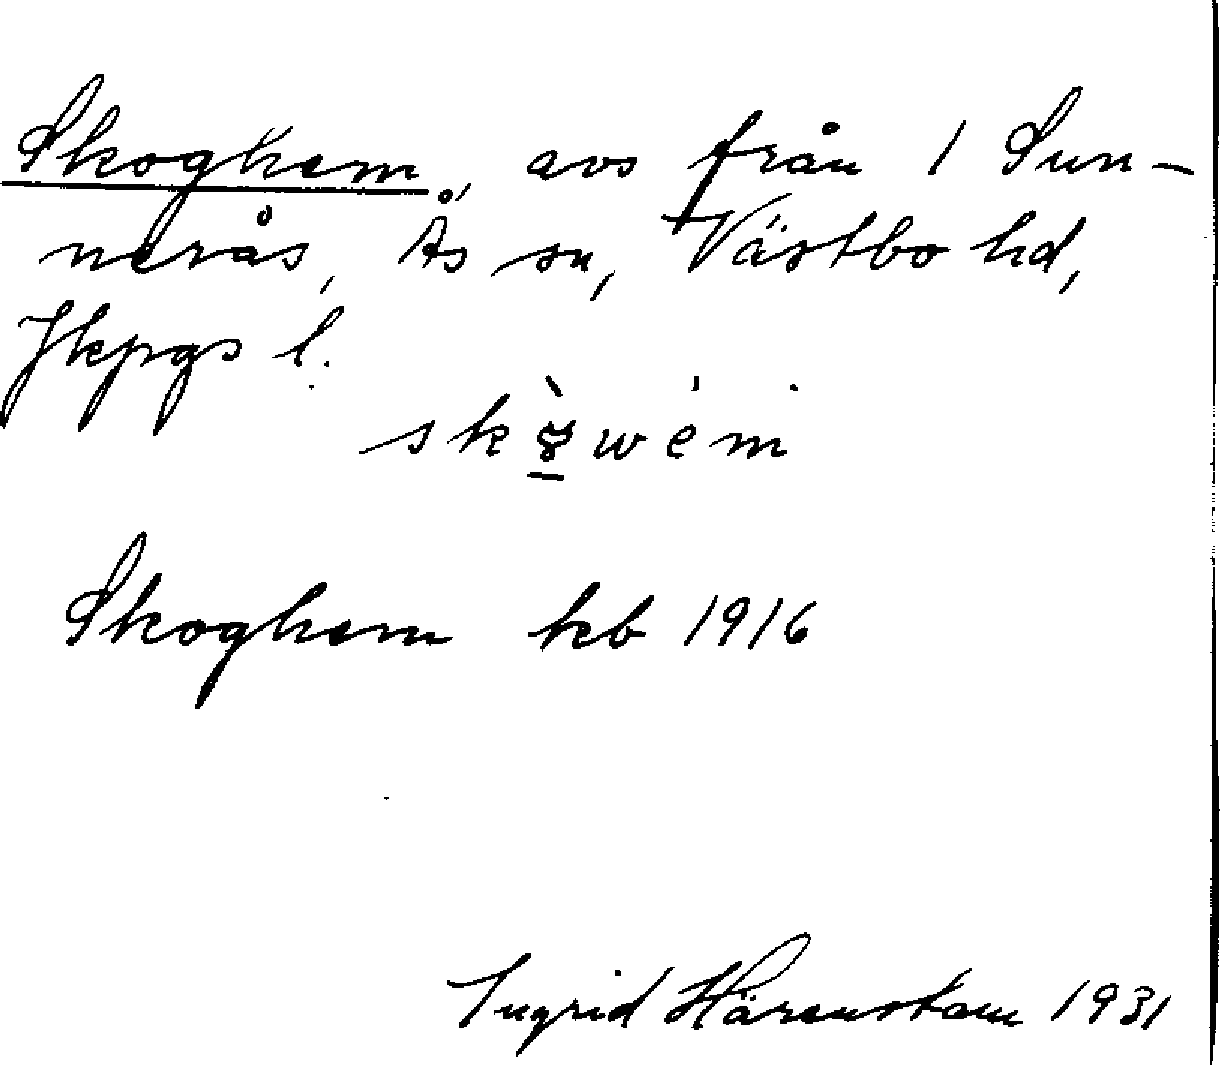 Skoghem, avs från 1 Sun-
nerås, Ås sn, Västbo hd,
Jkpgs l.
Skoghem kb 1916
Ingrid Härenstam 1931